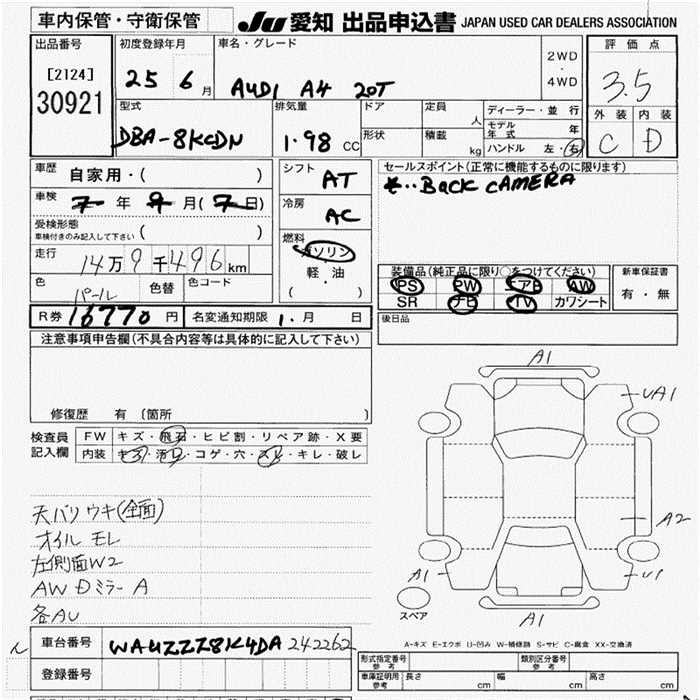 車内保管・守衛保管 JU 愛知 出品申込書 JAPAN USED CAR DEALERS ASSOCIATION
出品番号 初度登録年月 車名・グレード 評価点
[2124] 25 6月 AUDI A4 20T 2WD・4WD 3.5
30921 型式 排気量 ドア 定員 人 ディーラー・並行 外装 内装
DBA-8KCDN 1.98 CC 形状 積載 kg モデル年式 年 C D
ハンドル 左・右
車歴 自家用・( ) シフト AT セールスポイント(正常に機能するものに限ります)
車検 7年9月(7日) 冷房 AC *..Back CAMERA
受検形態 車検付きのみ記入して下さい ( )
燃料 ガソリン
走行 14万9千496km 軽・油
装備品(純正品に限り○をつけてください) 新車保証書
色 パール 色替 色コード ( ) PS PW エアB AW 有・無
SR ナビ TV カワシート
R券 16770円 名変通知期限 1.月 日 後日品
注意事項申告欄(不具合内容等は具体的に記入して下さい)
修復歴 有 〔箇所 〕
検査員記入欄 FW キズ・飛石・ヒビ割・リペア跡・X要
内装 キズ・汚れ・コゲ・穴・スレ・キレ・破レ
天バリウキ(全面)
オイルモレ
左側面W2
AW Dミラー A
各AU
A1
UA1
A2
A1 U1
A1
スペア
A-キズ E-エクボ U-凹み W-補修跡 S-サビ C-腐食 XX-交換済
車台番号 WAUZZZ8K4DA242262
登録番号
形式指定番号 参考 類別区分番号 参考
車庫証明用 参考 長さ cm 幅 cm 高さ cm